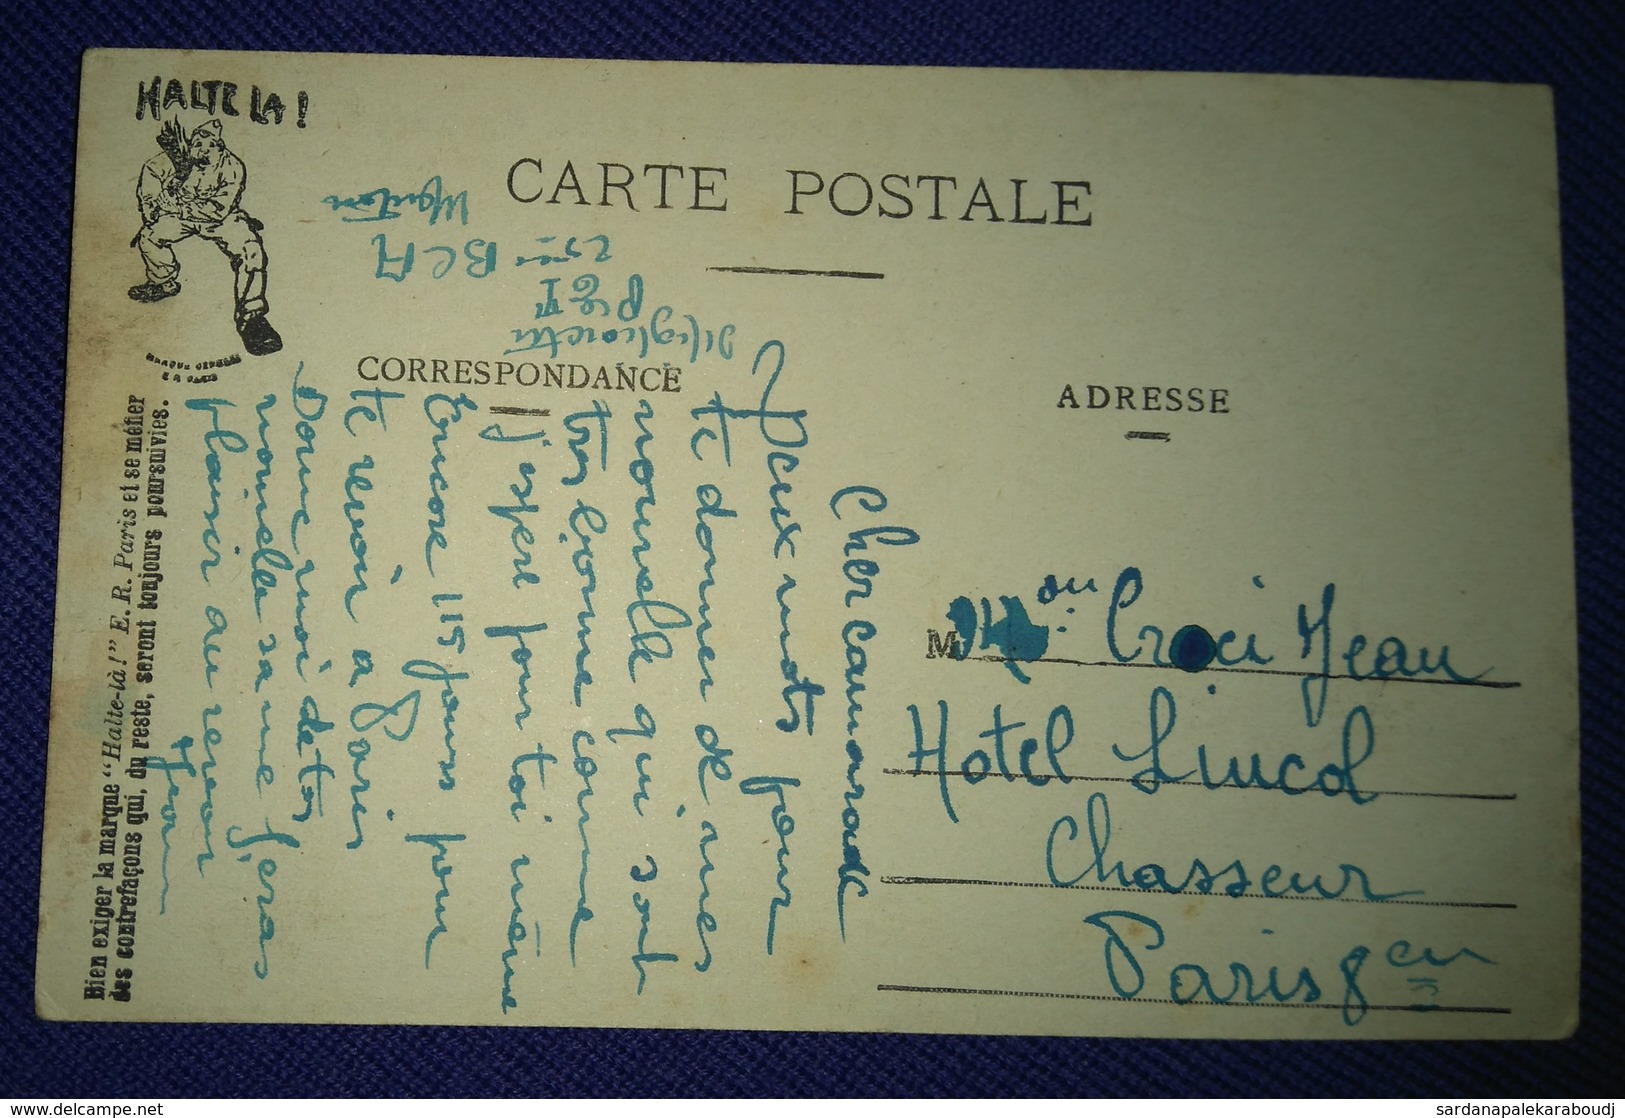 HALTE LA !
CARTE POSTALE
CORRESPONDANCE
ADRESSE
Bien exiger la marque "Halte-là!" E. R. Paris et se méfier
des contrefaçons qui, du reste, seront toujours poursuivies.
Cher camarade
Deux mots pour
te donner de mes
nouvelle qui sont
tres bonne comme
j'espere pour toi même
Encore 115 jours pour
te revoir a Paris
Donne moi de tes
nouvelle sa me feras
plaisir au revoir
25eme BCA
M
Croci Jean
Hotel Lincol
Chasseur
Paris 8em
sardanapalekaraboudj